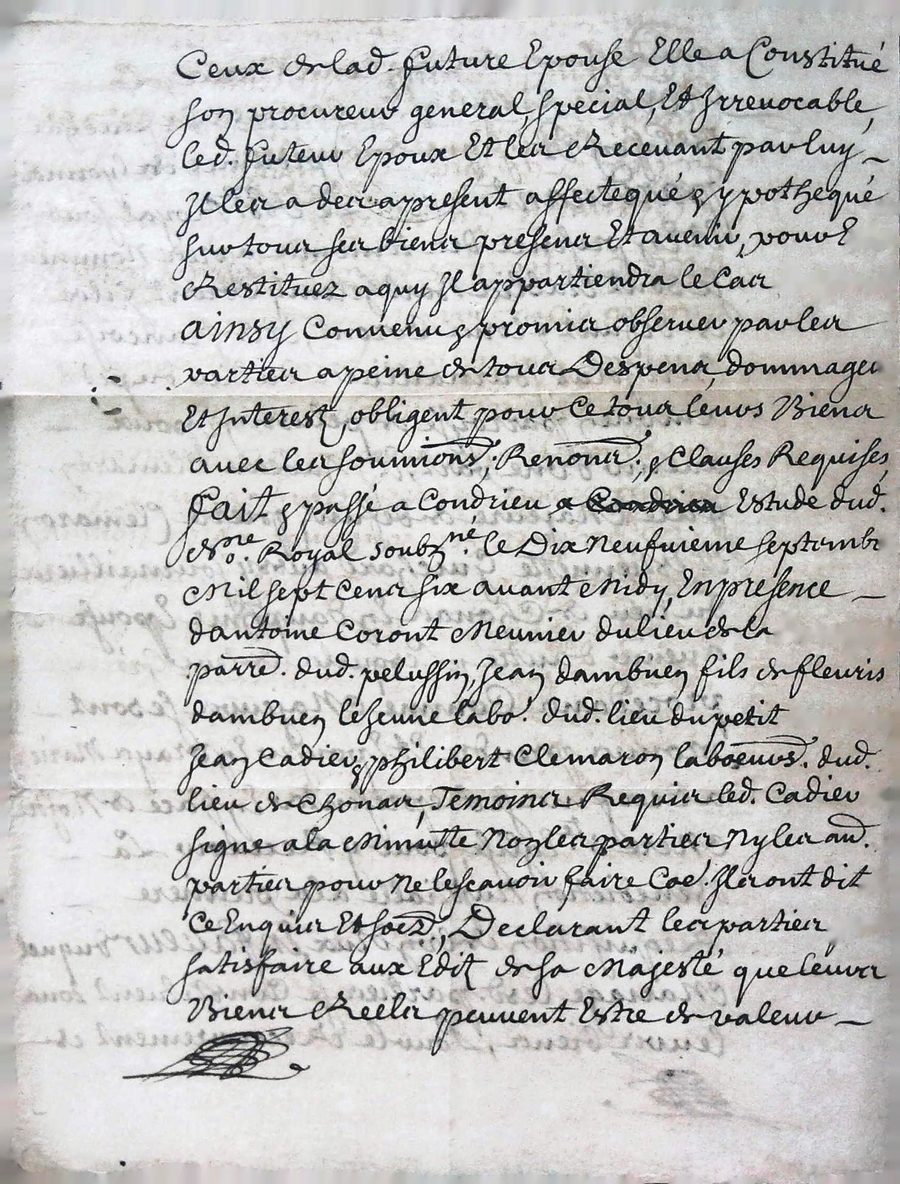 Ceux de lad. future Epouse Elle a Constitué
son procureur general, special, Et Irrevocable,
led. futeur Epoux Et les Recevant par luy –
Il les a des apresent affectequé & ypothequé
sur tous ses biens presens Et avenir, pour E
Restituez a quy Il appartiendra le Cas
ainsy Convenu & promis observer par les
parties a peine de tous Despens, dommages
Et Interest, obligent pour Ce tous leurs Biens
avec les soumions, Renons, & Clauses Requises,
fait & passé a Condrieu Estude dud.
No.re Royal soubz.né le Dix Neufuieme septemb
Mil sept Cens six avant Midy, En presence –
dantoine Coront Meunier du lieu de la
parre. dud. pelussin, Jean dambuen fils de fleuris
dambuen le Jeune labo. dud. lieu du petit
Jean Cadier, & philibert Clemaron laboeurs. dud.
lieu de Chonas, Temoins Requis led. Cadier
signe a la Minutte Non les parties Ny les au.
parties pour Ne le scavoir faire Coe. Ils ont dit
Ce Enquis Et soez, Declarant les parties
satisfaire aux Edit de sa Majesté que leurs
Biens Reels peuvent Estre de valeur –